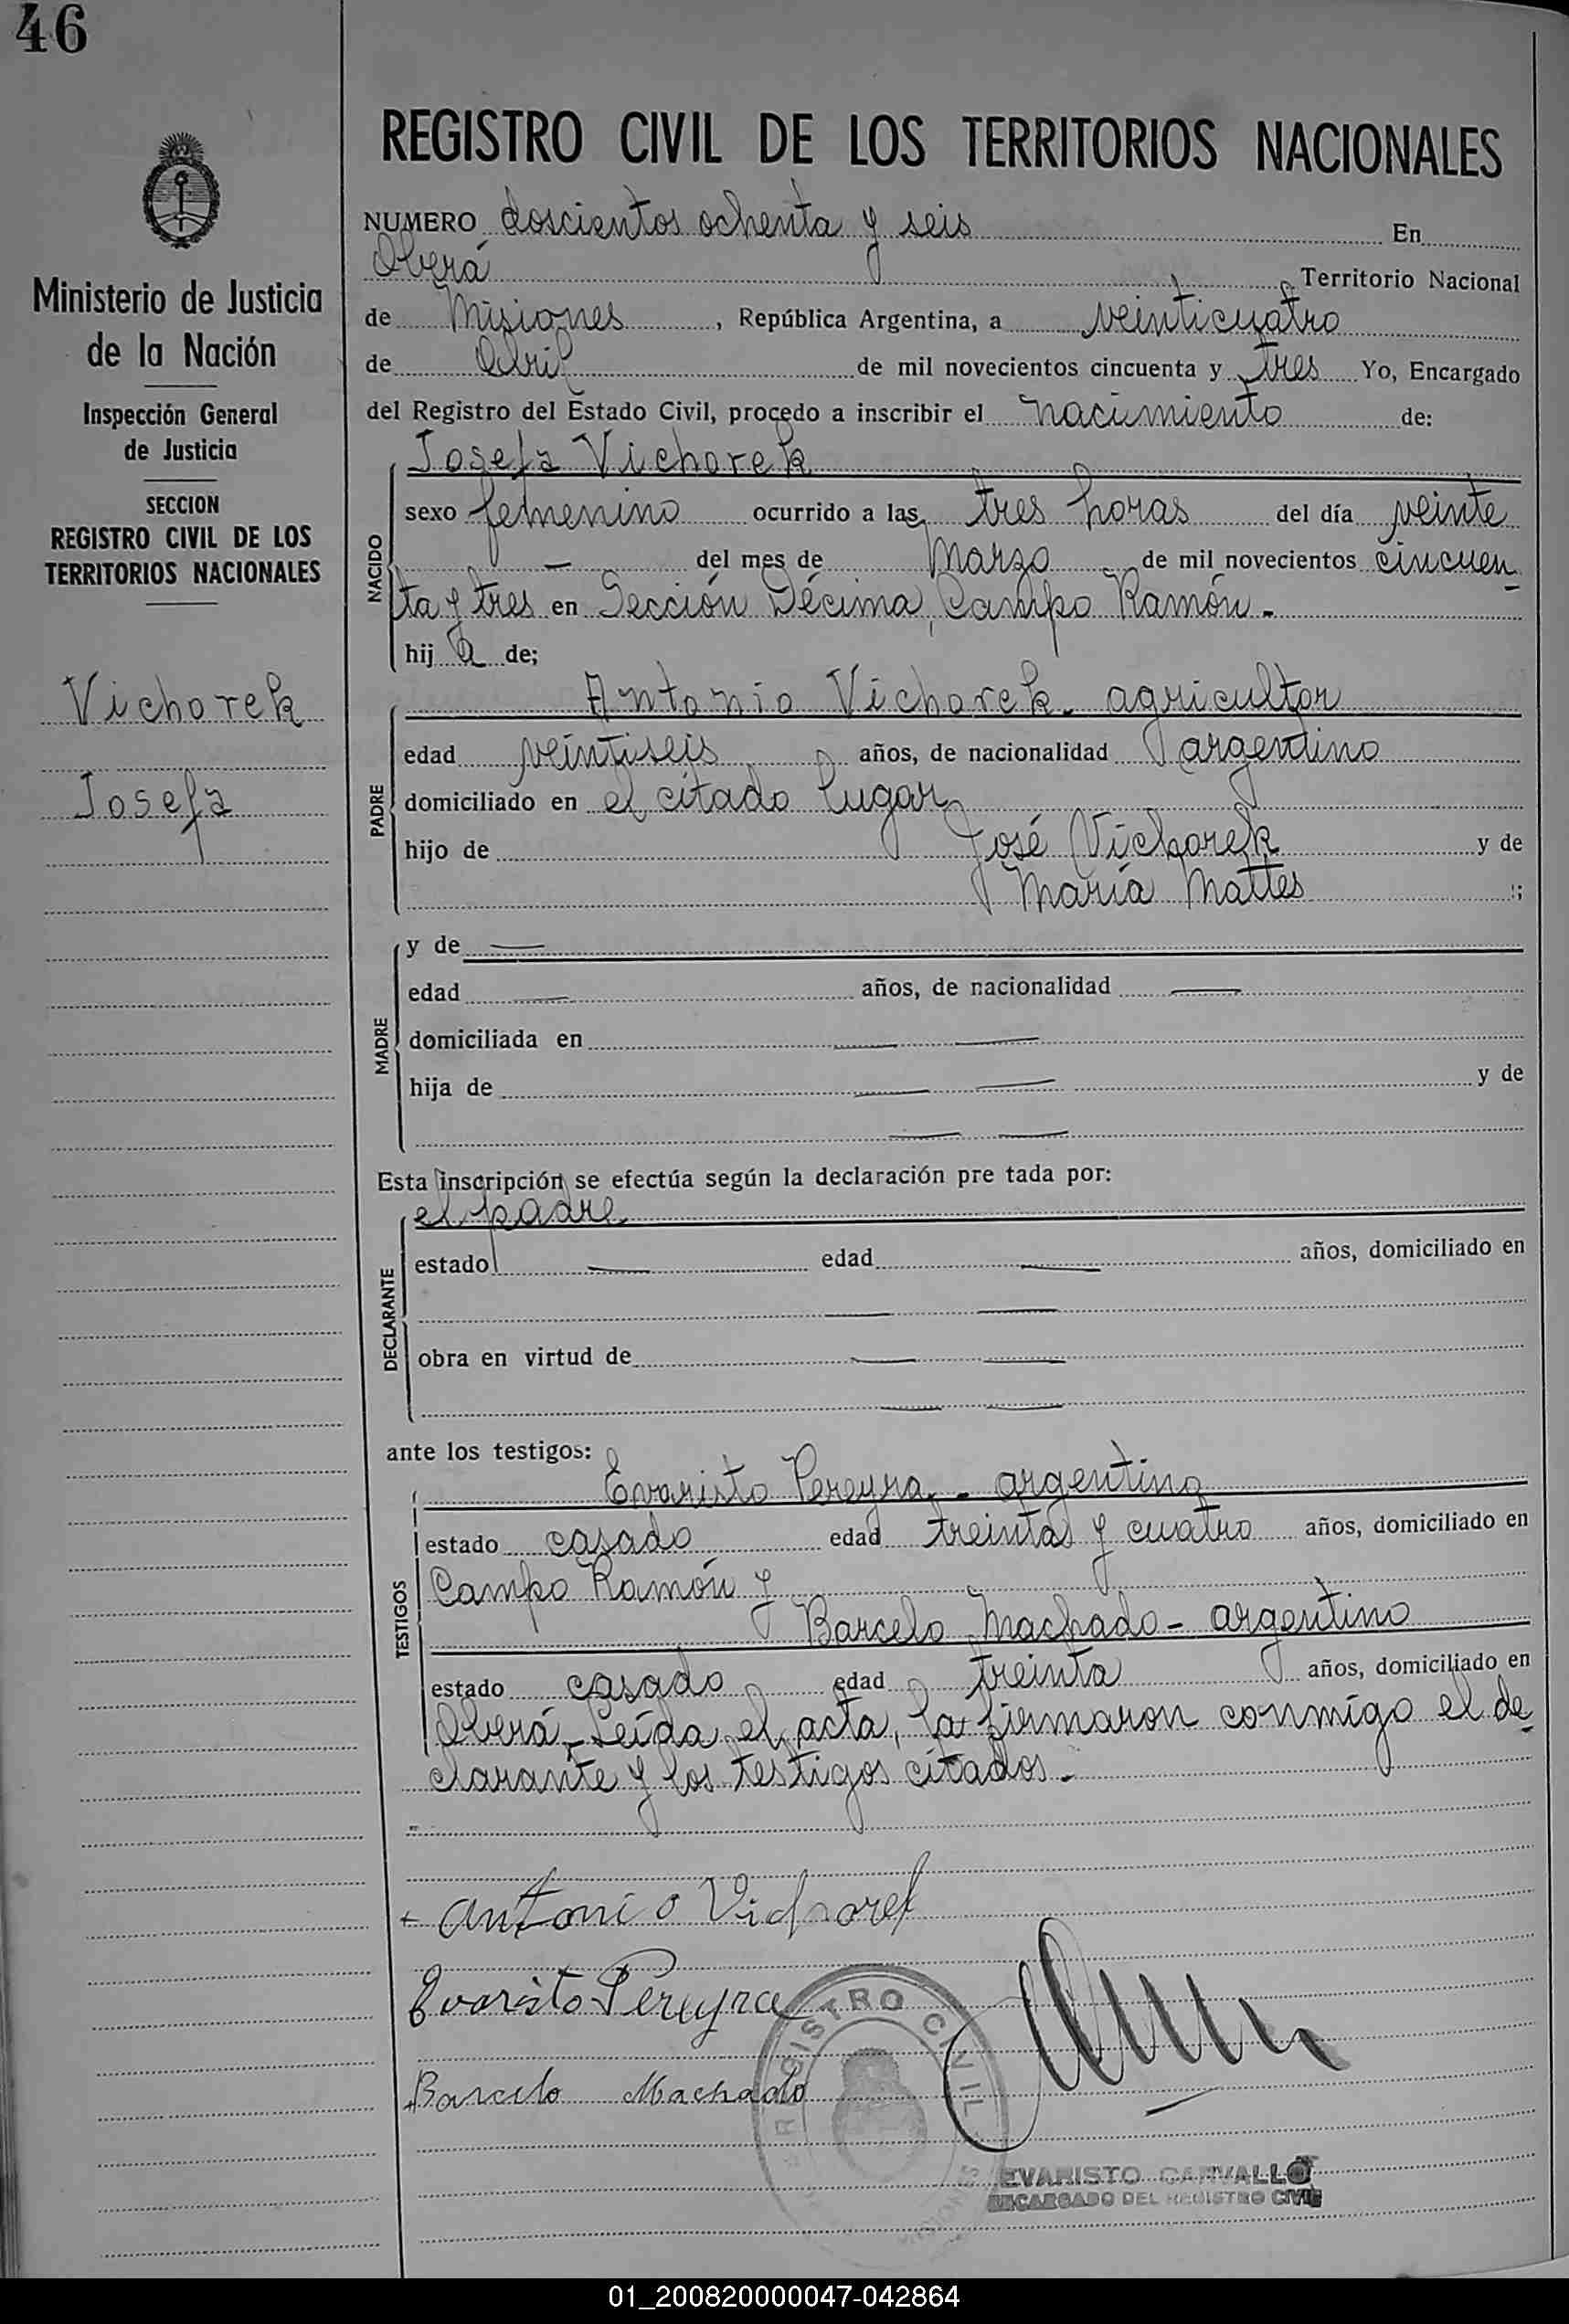 46
REGISTRO CIVIL DE LOS TERRITORIOS NACIONALES
Ministerio de Justicia
de la Nación
Inspección General
de Justicia
SECCION
REGISTRO CIVIL DE LOS
TERRITORIOS NACIONALES
Vichorek
Josefa
NUMERO doscientos ochenta y seis En
Oberá Territorio Nacional
de Misiones, República Argentina, a veinticuatro
de Abril de mil novecientos cincuenta y tres Yo, Encargado
del Registro del Estado Civil, procedo a inscribir el nacimiento de:
Josefa Vichorek
NACIDO
sexo femenino ocurrido a las tres horas del día veinte
— del mes de Marzo de mil novecientos cincuen
ta y tres en Sección Décima, Campo Ramón.-
hij a de;
Antonio Vichorek. agricultor
PADRE
edad veintiseis años, de nacionalidad argentino
domiciliado en el citado lugar
hijo de José Vichorek y de
María Mattes ;
MADRE
y de —
edad — años, de nacionalidad —
domiciliada en — —
hija de — — y de
— —
Esta inscripción se efectúa según la declaración pre tada por:
el padre
DECLARANTE
estado — edad — años, domiciliado en
— —
obra en virtud de — —
— —
ante los testigos:
Evaristo Pereyra.- argentino
TESTIGOS
estado casado edad treinta y cuatro años, domiciliado en
Campo Ramón y
Barcelo Machado - argentino
estado casado edad treinta años, domiciliado en
Oberá.- Leída el acta, la firmaron conmigo el de
clarante y los testigos citados.-
Antonio Vichorek
Evaristo Pereyra
Barcelo Machado
REGISTRO CIVIL
EVARISTO CARVALLO
ENCARGADO DEL REGISTRO CIVIL
01_200820000047-042864